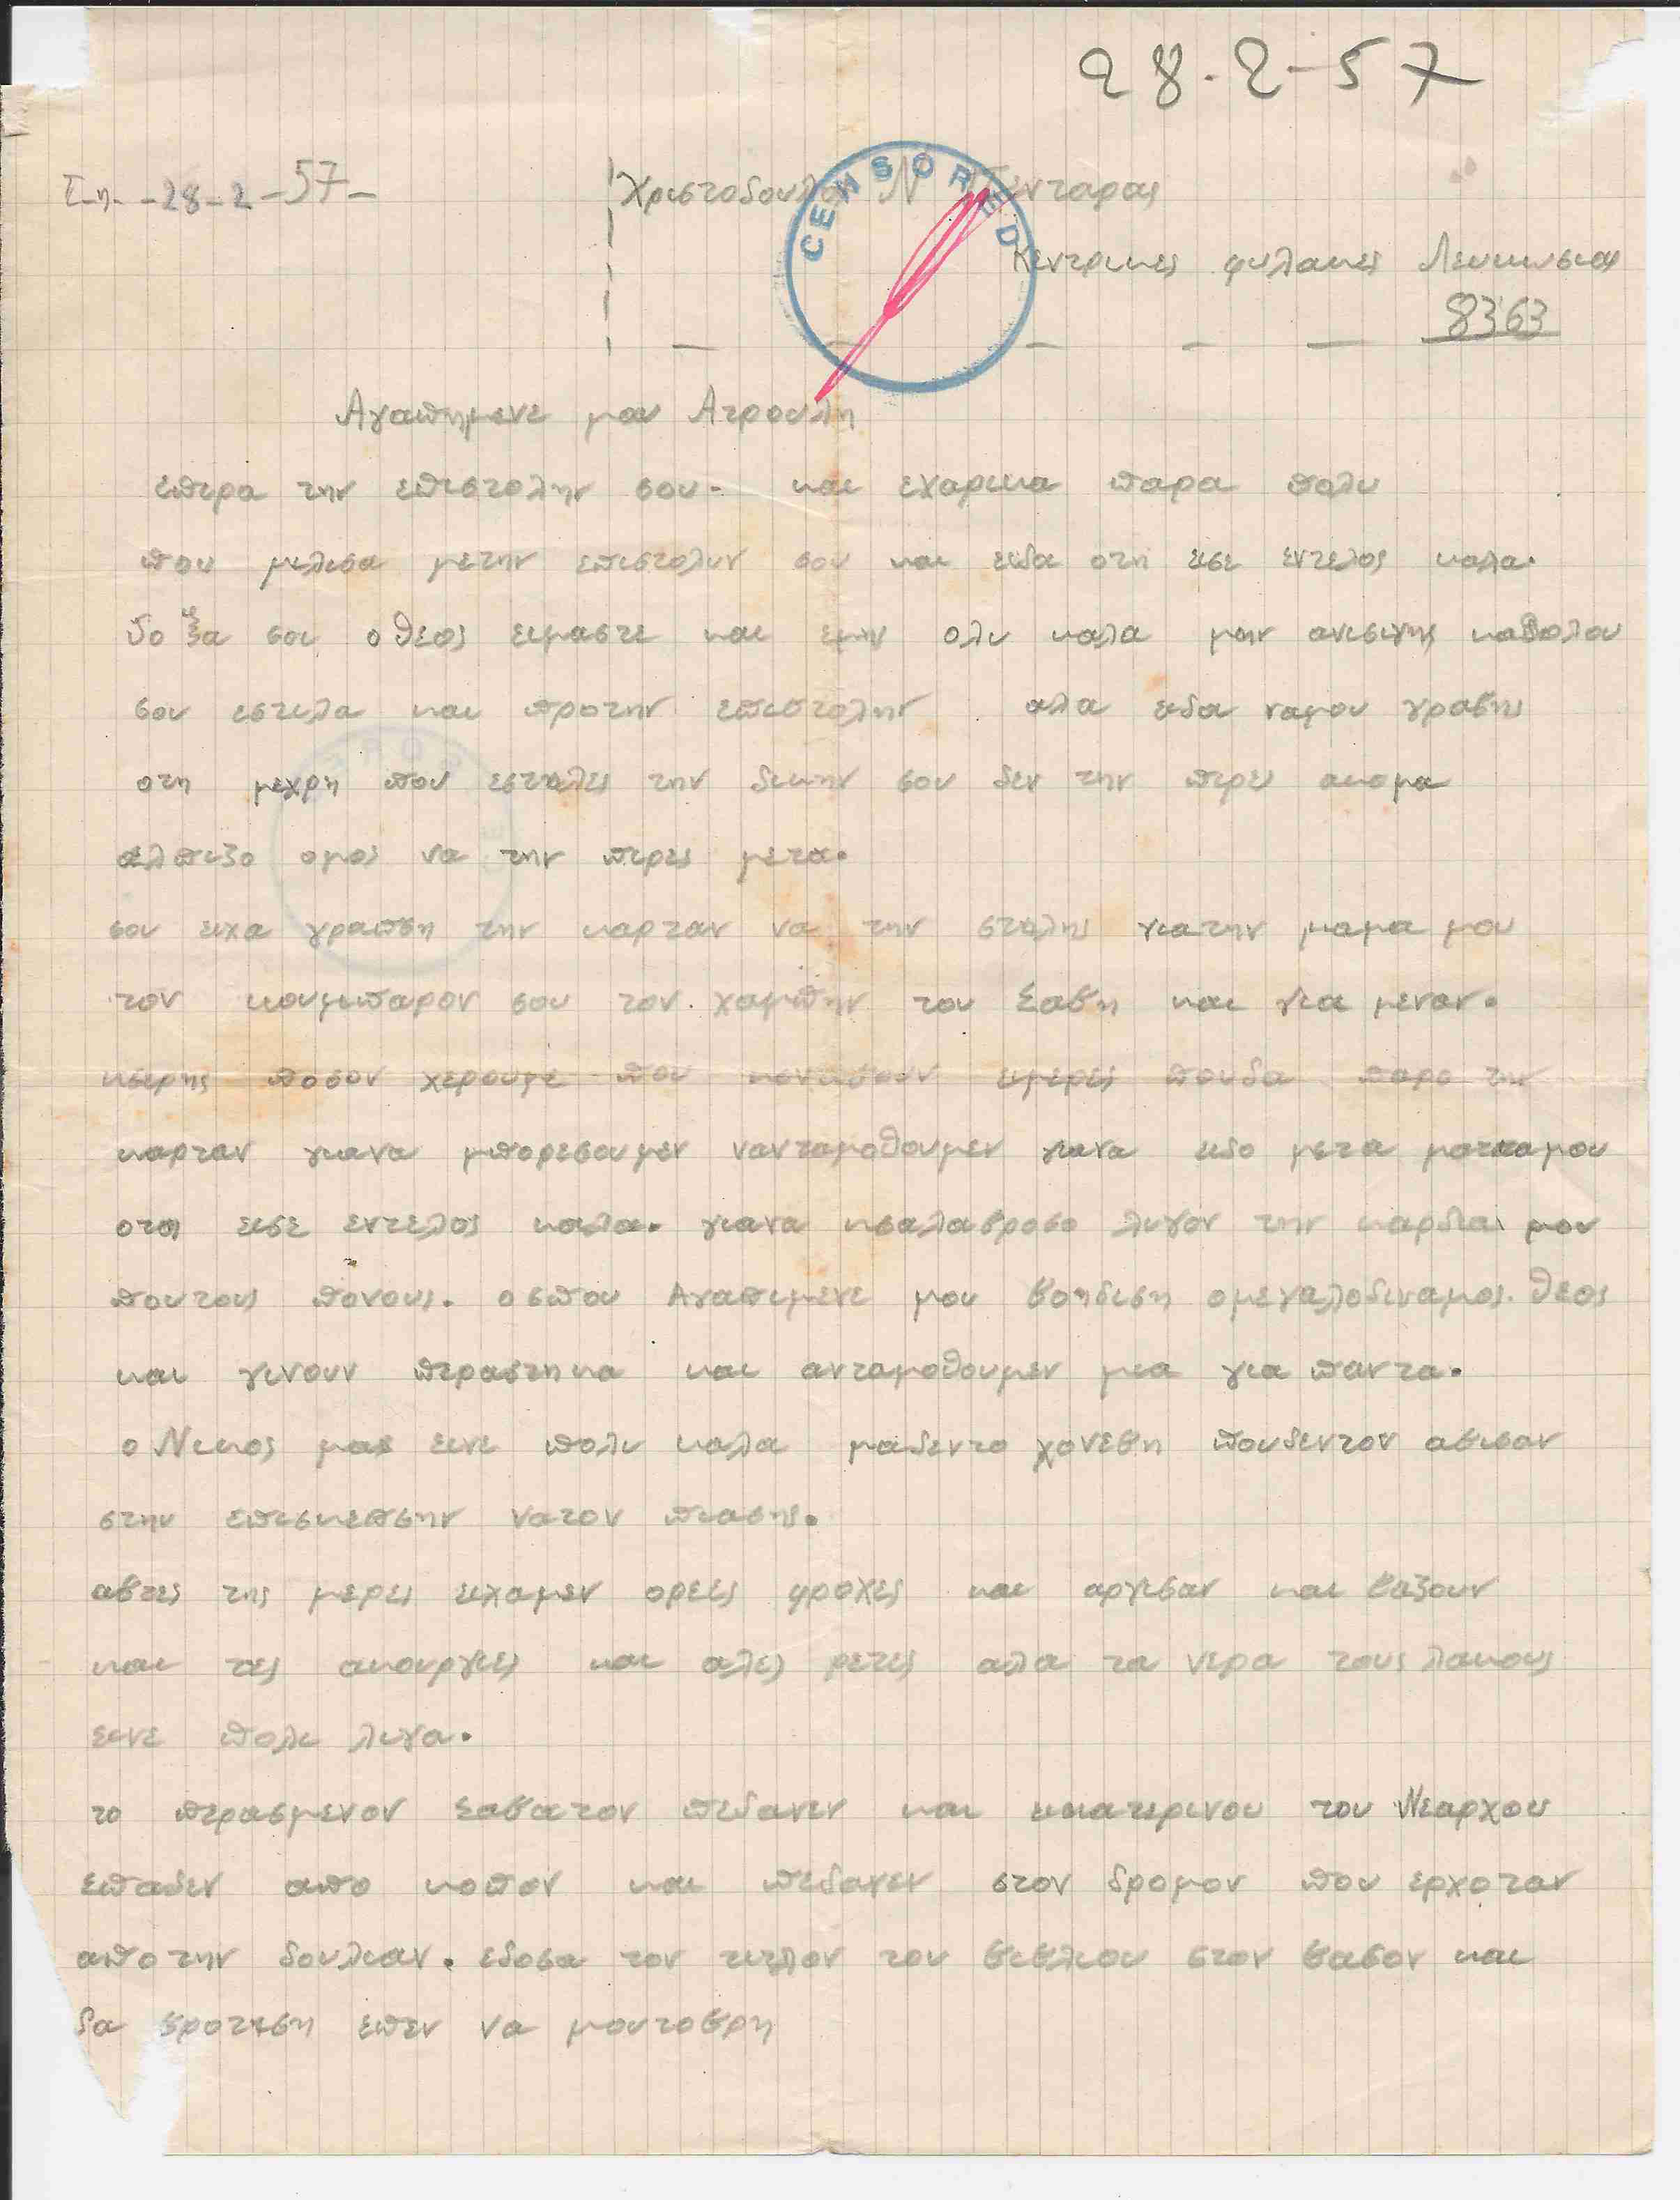 28-2-57
Σ.η. -28-2-57-
Χριστοδουλο Ν Πένταρας
CENSORED
Κεντρικες φυλακες Λευκωσιας
8363
Αγαπημενε μου Ατρουλη
επιρα την επιστολην σου. και εχαρικα παρα πολυ
που μιλισα μετην επιστολην σου και ειδα οτη εισε εντελος καλα.
δοξα σοι ο θεος ειμαστε και εμης ολυ καλα μην ανισιχης καθολου
σου εστιλα και προτην επιστολην αλα ειδα ναμου γραβης
οτη μεχρη που εστιλες την δικην σου δεν την πιρες ακομα
ελπιζο ομος να την πιρες μετα.
σου ειχα γραπση την καρταν να την στιλης γιατην μαμα μου
τον κουμπαρον σου τον χαμπην του Σαβη και για μεναν.
κσερης ποσον χερουμε που κοντεβουν ημερες πουδα παρο την
καρταν γιανα μπορεσουμεν νανταμοθουμεν γιανα ειδο μετα ματιαμου
οτι εισε εντελος καλα. γιανα κσαλαβροσο λιγον την καρδιαι μου
πουτους πονους. οσπου Αγαπιμενε μου βοηδιση ομεγαλοδιναμος. θεος
και γινουν περαστηκα και ανταμοθουμεν μια για παντα.
ο Νικος μας εινε πολυ καλα μαδεντο χονεβη πουδεντον αφισαν
στην επισκεπσην νατον πιασης.
αβτες της μερες ειχαμεν ορεες φροχες και αργισαν και βαζουν
και τες ακουργιες και αλες ρετες αλα τα νερα τους λακους
εινε πολι λιγα.
το περασμενον Σαβατον πεδανεν και εκατερινου του Νεαρχους
επαδεν απο κοπον και πεδανεν στον δρομον που ερχοταν
απο την δουλιαν. εδοσα τον τιτλον του βιβλιου στον βασον και
δα βροτιση ειπεν να μουτοβρη